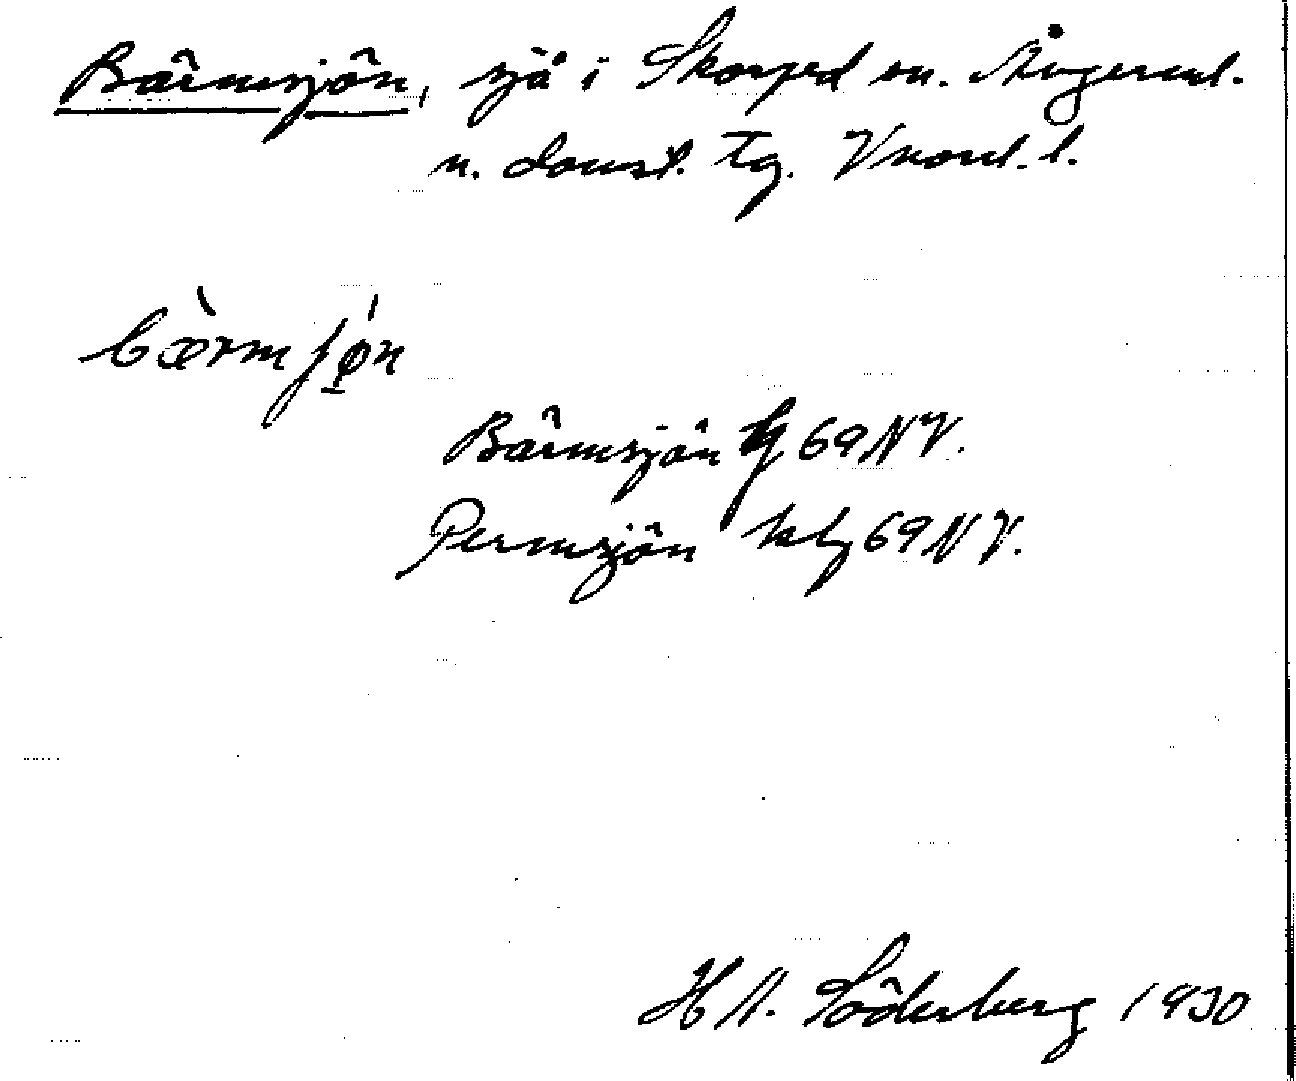 Bärmsjön, sjö i Skorped sn. Ångerml.
n. doms. tg. Vnorrl. l.
bærmsjøn
Bärmsjön 69 NV.
Permsjön hlz 69 NV.
H A. Söderberg 1930